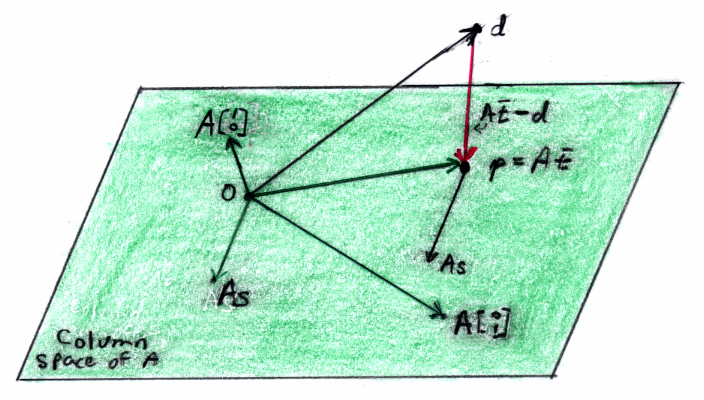 d
A[1 0]
At̄-d
p = At̄
O
As
As
A[0 1]
Column
space of A